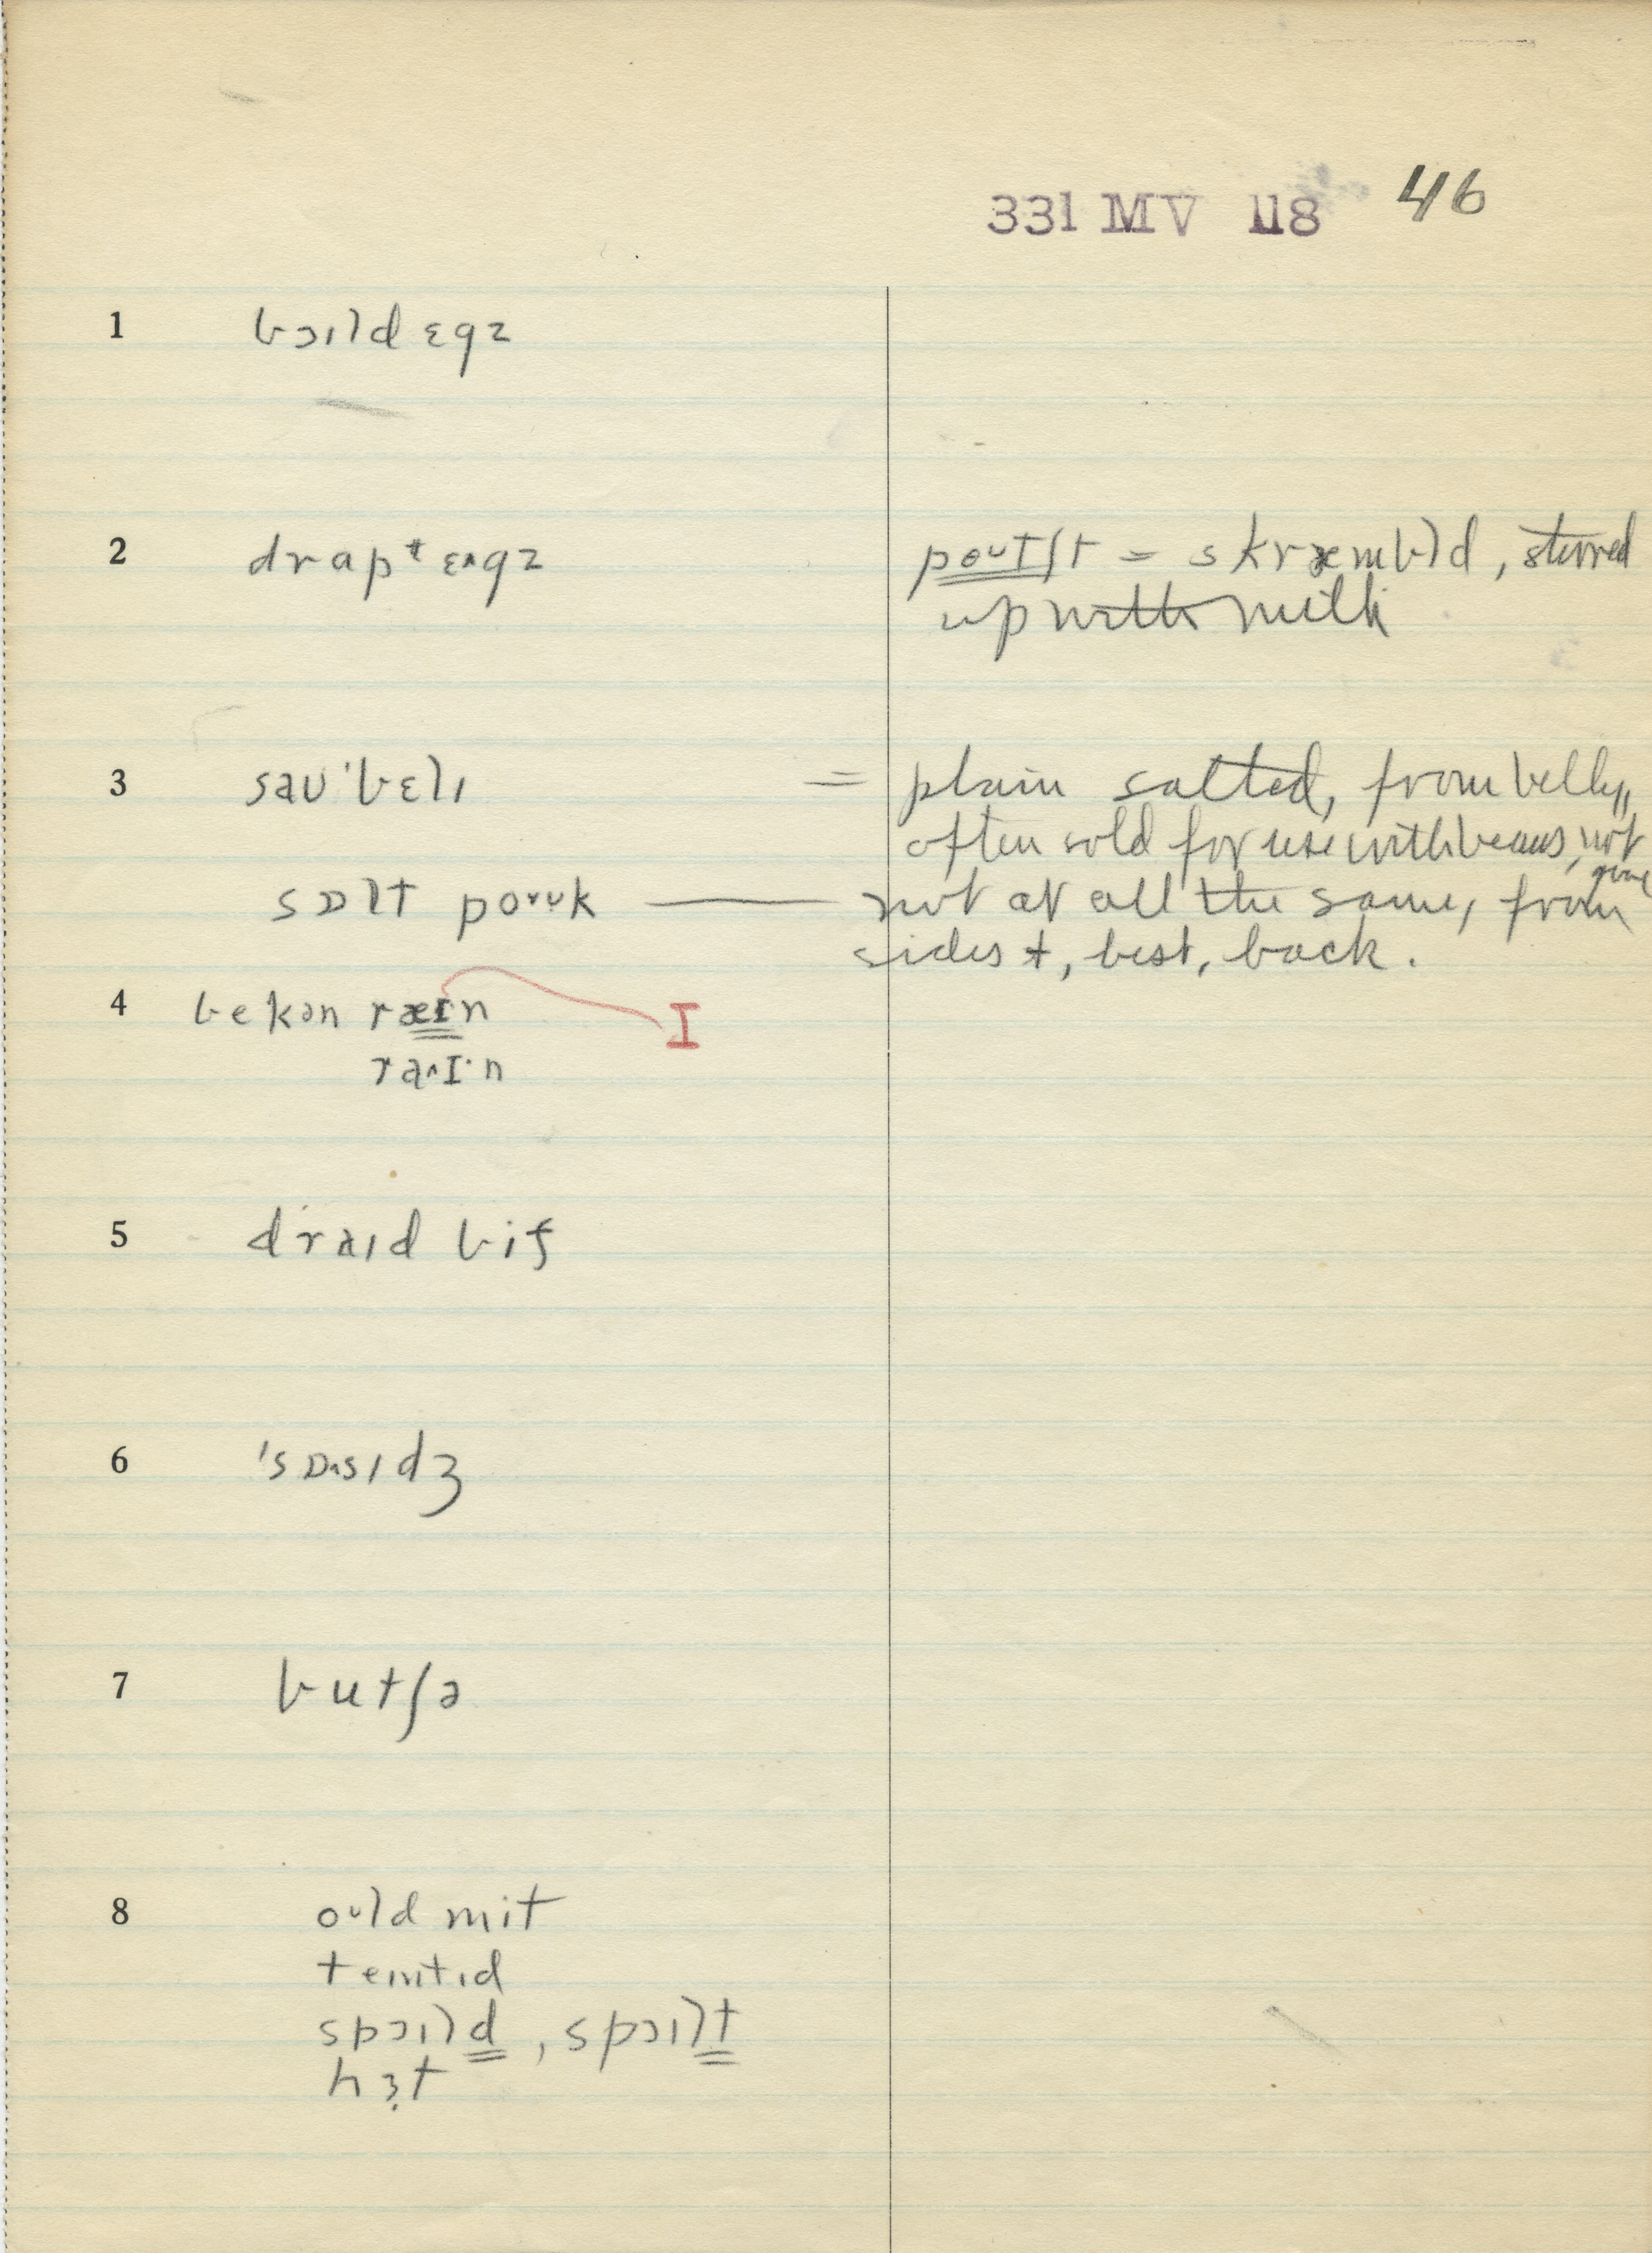 331 MV 118 46
1 bɔɪld ɛgz
2 drapᵗ ɛ˄gz
poʊtʃt = skræmbld, stirred
up with milk
3 saʊˈbɛlɪ = plain salted, from belly,
often sold for use with beans, not
sɒlt poʊk — not at all the same, from
sides +, best, back.
4 bekən ræɪn I
ra˄I·n
5 draɪd bif
6 ˈsɒ˄sɪdʒ
7 butʃə
8 oʊld mit
teɪntɪd
spɔɪld, spɔɪlt
hɜt